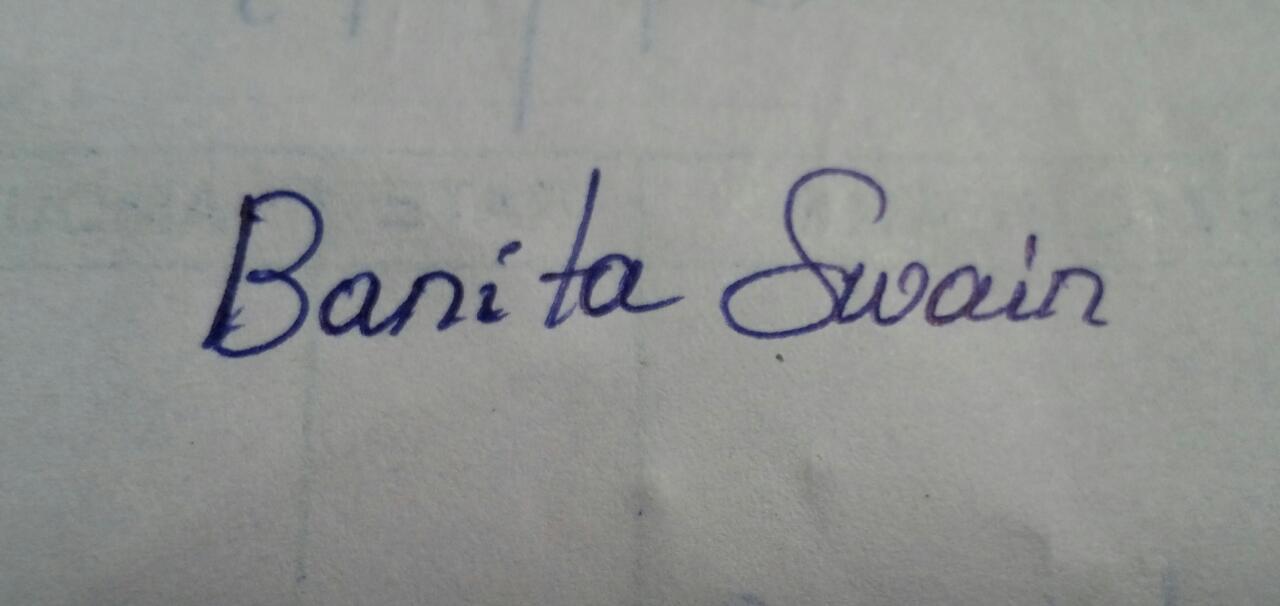 Banita Swain